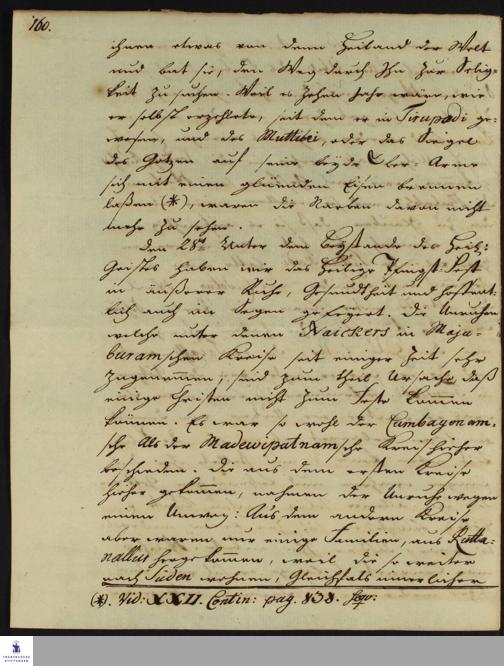 160.
ihnen etwas von dem Heiland der Welt
und bat sie, den Weg durch Ihn zur Selig-
keit zu suchen. Weil es zehen Jahr wäre, wie
er selbst erzehlete, seit dem er in Tirupadi ge-
wesen, und das Muttirei, oder das Siegel
des Götzen auf seine beyde Ober-Arme
sich mit einen glüenden Eisen brennen
laßen (*), waren die Narben davon nicht
mehr zu sehen.
Den 28ten Unter dem Beystande des Heil:
Geistes haben wir das heilige Pfingst-Fest
in äußerer Ruhe, Gesundtheit und hoffent-
lich auch im Segen gefeyert. Die Unruhen
welche unter denen Naickers in Maja-
buramschen Kreise seit einiger Zeit sehr
zugenommen, sind zum theil Ursache daß
einige Christen nicht zum Feste kommen
können. Es war so wohl der Cumbagonam-
sche als der Madewipatnamsche Kreis hieher
beschieden. Die aus dem ersten Kreise
hieher gekommen, nahmen der Unruhe wegen
einen Umweg: Aus dem andern Kreise
aber waren nur einige Familien, aus Rotta-
nallur hergekommen, weil die so weiter
nach Süden wohnen, Gleichfals innerlicher
(*). Vid: XXII. Contin: pag. 838. seqq:
FRANCKESCHE
STIFTUNGEN